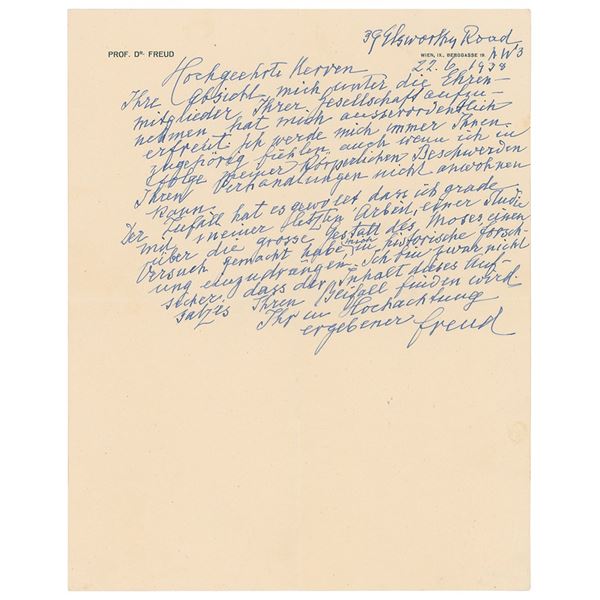 39 Elsworthy Road
PROF. DR. FREUD
WIEN, IX., BERGGASSE 19. NW3
22.6.1938
Hochgeehrte Herren
Ihre Absicht, mich unter die Ehren-
mitglieder Ihrer Gesellschaft aufzu-
nehmen hat mich ausserordentlich
erfreut. Ich werde mich immer Ihnen
zugehörig fühlen, auch wenn ich in
folge meiner körperlichen Beschwerden
Ihren Verhandlungen nicht anwohnen
kann.
Der Zufall hat es gewollt dass ich grade
mit meiner letzten Arbeit, einer Studie
über die grosse Gestalt des Moses einen
Versuch gemacht habe, mich in historische Forsch-
ung einzudrängen. Ich bin zwar nicht
sicher, dass der Inhalt dieses Auf-
satzes Ihren Beifall finden wird
Ihr in Hochachtung
ergebener Freud